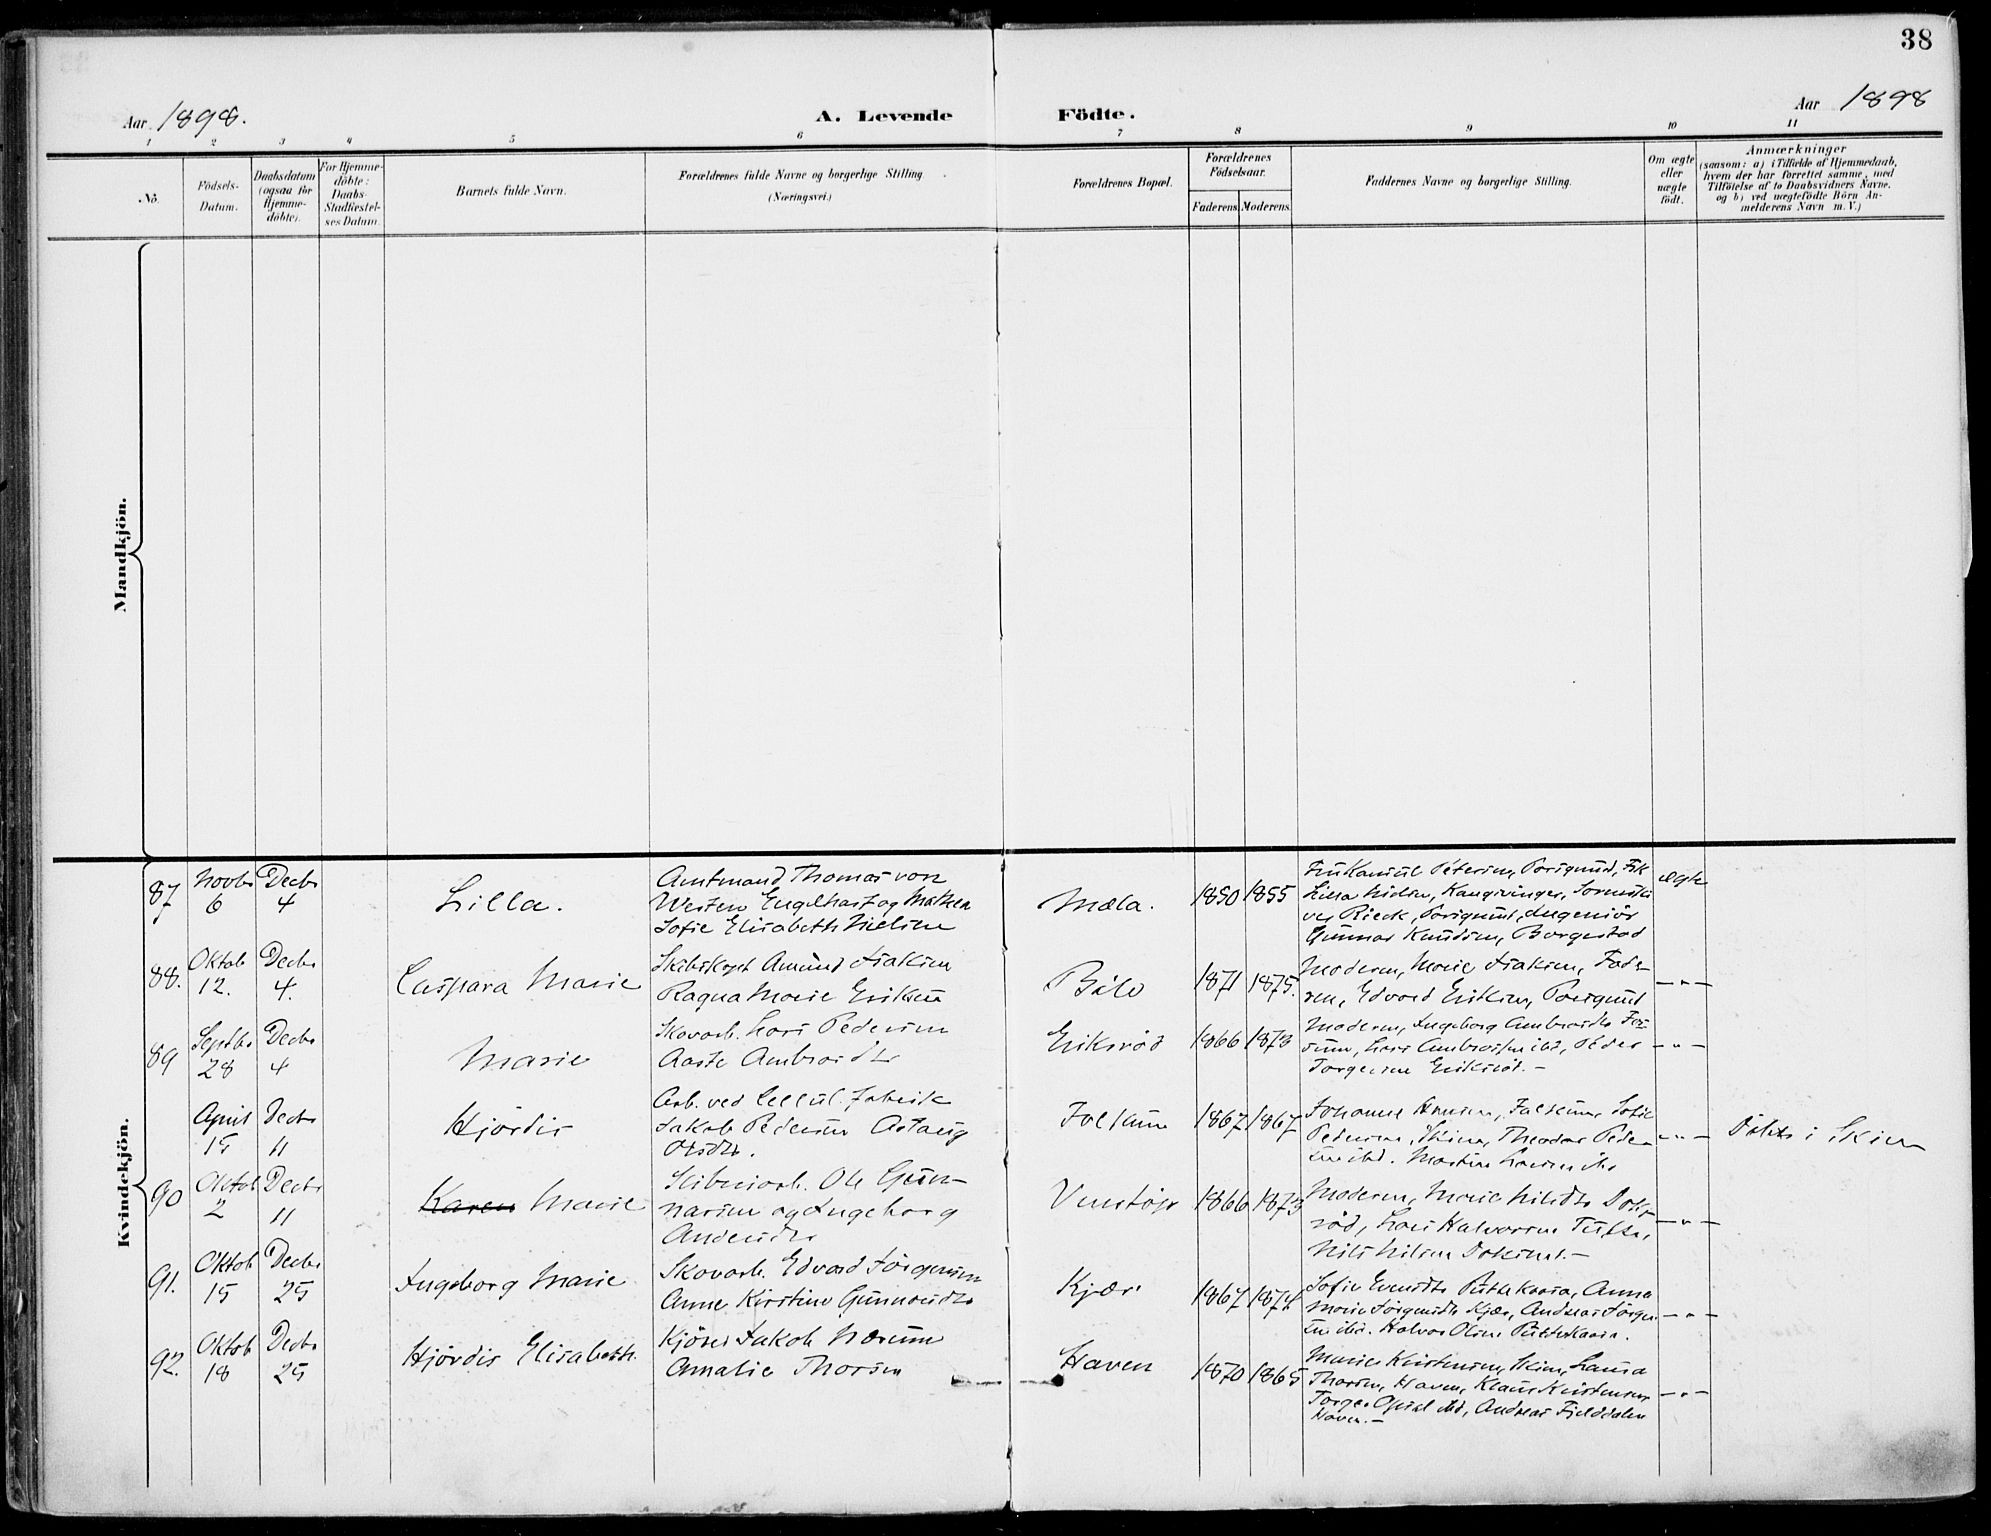 38
Aar 1898.
A. Levende Födte.
Aar 1898
1 2 3 4 5 6 7 8 9 10 11
No.
Födsels-
Datum.
Daabsdatum
(ogsaa for
Hjemme-
döbte).
For Hjemme-
döbte:
Daabs-
Stadfæstel-
ses Datum.
Barnets fulde Navn.
Forældrenes fulde Navne og borgerlige Stilling
(Næringsvei.)
Forældrenes Bopæl.
Forældrenes
Födselsaar.
Faderens. Moderens.
Faddernes Navne og borgerlige Stilling.
Om ægte
eller
uægte
födt.
Anmærkninger
(saasom: a) i Tilfælde af Hjemmedaab,
hvem der har forrettet samme, med
Tilföielse af to Daabsvidners Navne,
og b) ved uægtefödte Börn An-
melderens Navn m. V.)
Mandkjön.
Kvindekjön.
87
Novbr
6
Decbr
4
Lilla.
Amtmand Thomas von
Westen Engelhart og Mathea
Sofie Elisabeth Nielsen
Mæla.
1850 1855
Petersen, Porsgrund,
Lilla Nielsen, Kongsvinger,
Rieck, Porsgrund, Ingeniör
Gunnar Knudsen, Borgestad
ægte
88.
Oktob
12.
Decbr
4.
Caspara Marie
Skibskapt Amund Isaksen
Ragna Marie Eriksen
1871 1875.
Moderen, Marie Isaksen, Fade-
ren, Edvard Eriksen, Porsgrund
— " —
89
Septbr
28
Decbr
4
Marie
Skovarb. Lars Pedersen
Aaste Ambrosdtr
Eriksröd
1866 1873
Moderen, Ingeborg Ambrosdtr
Lars Ambrosen ibd, Peder
Torgersen Eriksröd. —
— " —
April
15
Decbr
11
Hjördis
Arb. ved Cellul. fabrik
Jakob Pedersen Aslaug
Olsdtr.
Folkum
1867 1867
Johanne Hansen, Falkum, Sofie
Pedersen, Skien, Theodor Peder-
sen ibd. Martin Larsen ibd
— " —
Döbt i Skien
90
Oktob
2
Decbr
11
Karen Marie
Ole Gun-
narsen og Ingeborg
Andersdtr
Venstöp
1866 1873
Moderen, Marie Nilsdtr
röd, Lars Halvorsen Tufte,
Nils Nilsen
— " —
91.
Oktob
15
Decbr
25
Ingeborg Marie
Skovarb. Edvard Jörgensen
Anne Kirstine Gunnarsdtr
Kjær
1867 1874
Sofie Anne
Marie Jörgensdtr Kjær, Andreas Jörgen-
sen ibd. Halvor Olsen
— " —
92.
Oktob
18
Decbr
25
Hjördis Elisabeth.
Kjörer Jakob Narum
Amalie Thorsen
Haven
1870 1865
Marie Kristensen, Skien, Laura
Thorsen, Haven, Klaus Kristensen
Torger Opsal ibd, Andreas Fjelddalen
Haven. —
— " —